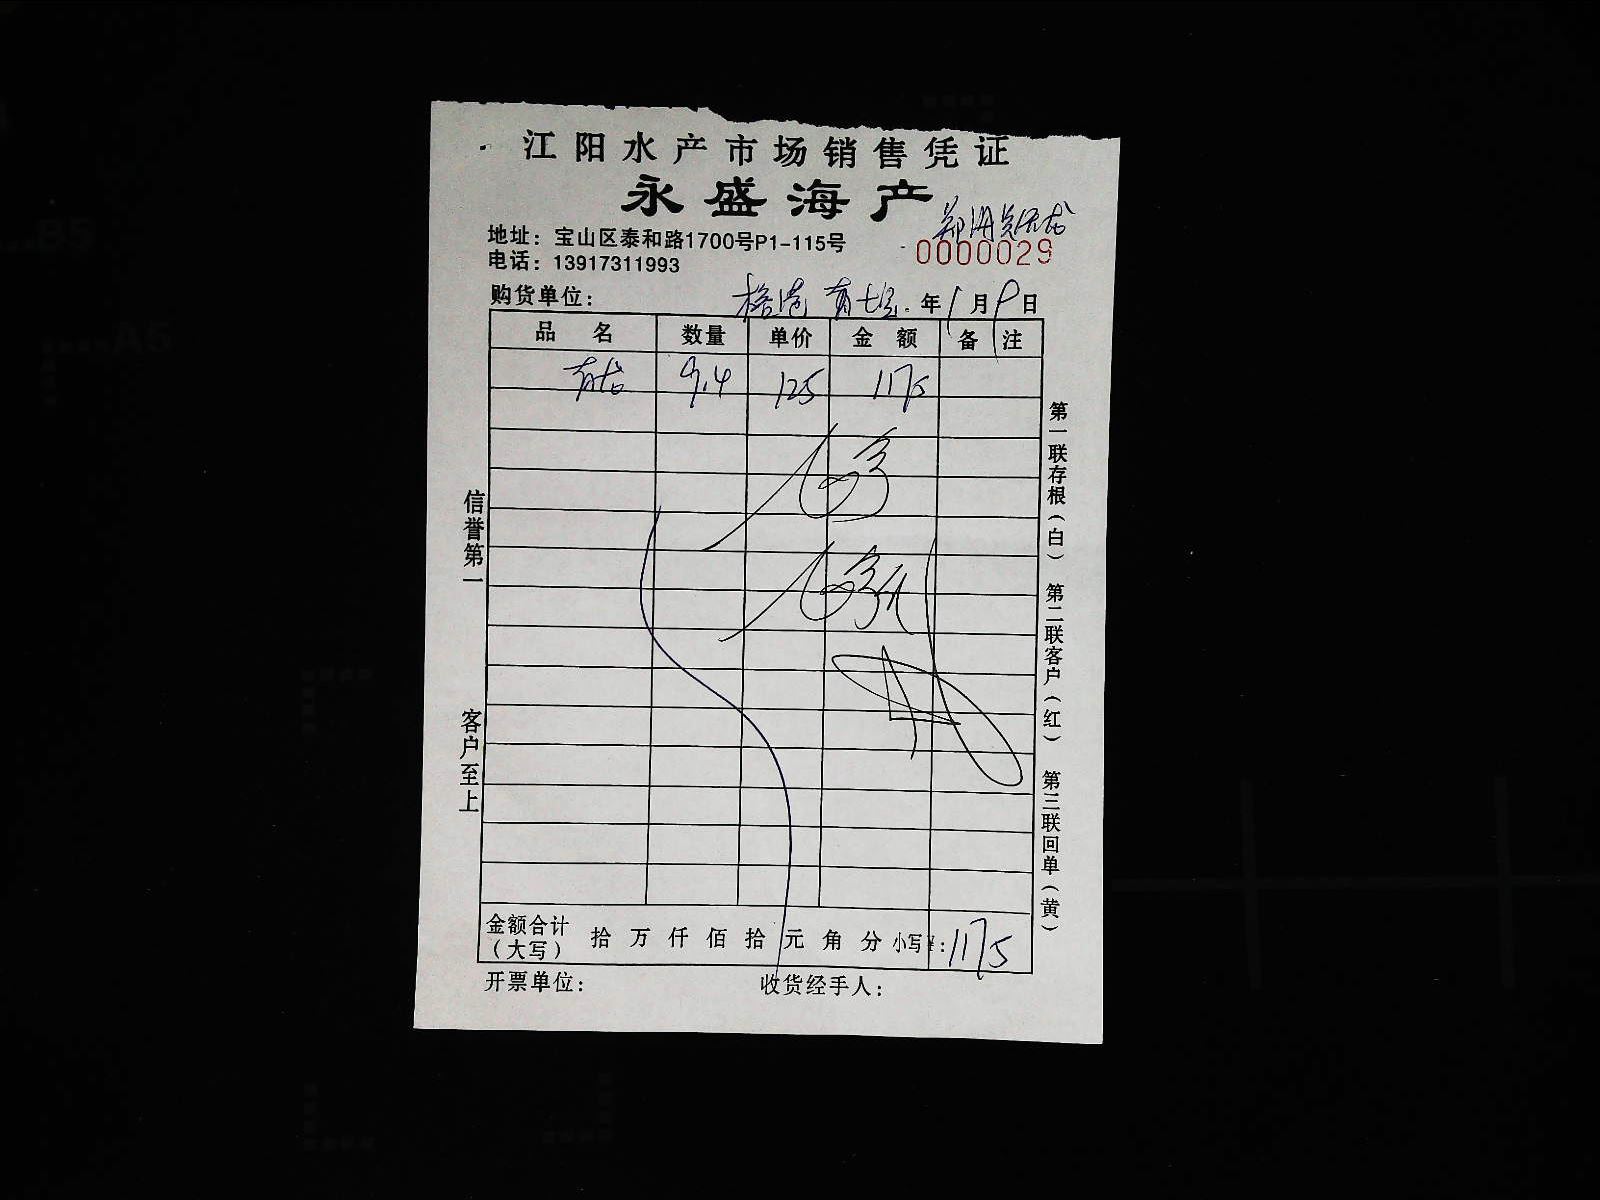 江阳水产市场销售凭证
永盛海产
地址：宝山区泰和路1700号P1-115号
电话：13917311993
0000029
购货单位： 年 1月9日
品名 数量 单价 金额 备注
9.4 125 1175
信誉第一
客户至上
第一联存根（白） 第二联客户（红） 第三联回单（黄）
金额合计（大写） 拾 万 仟 佰 拾 元 角 分 小写¥：1175
开票单位： 收货经手人：
B5
A5